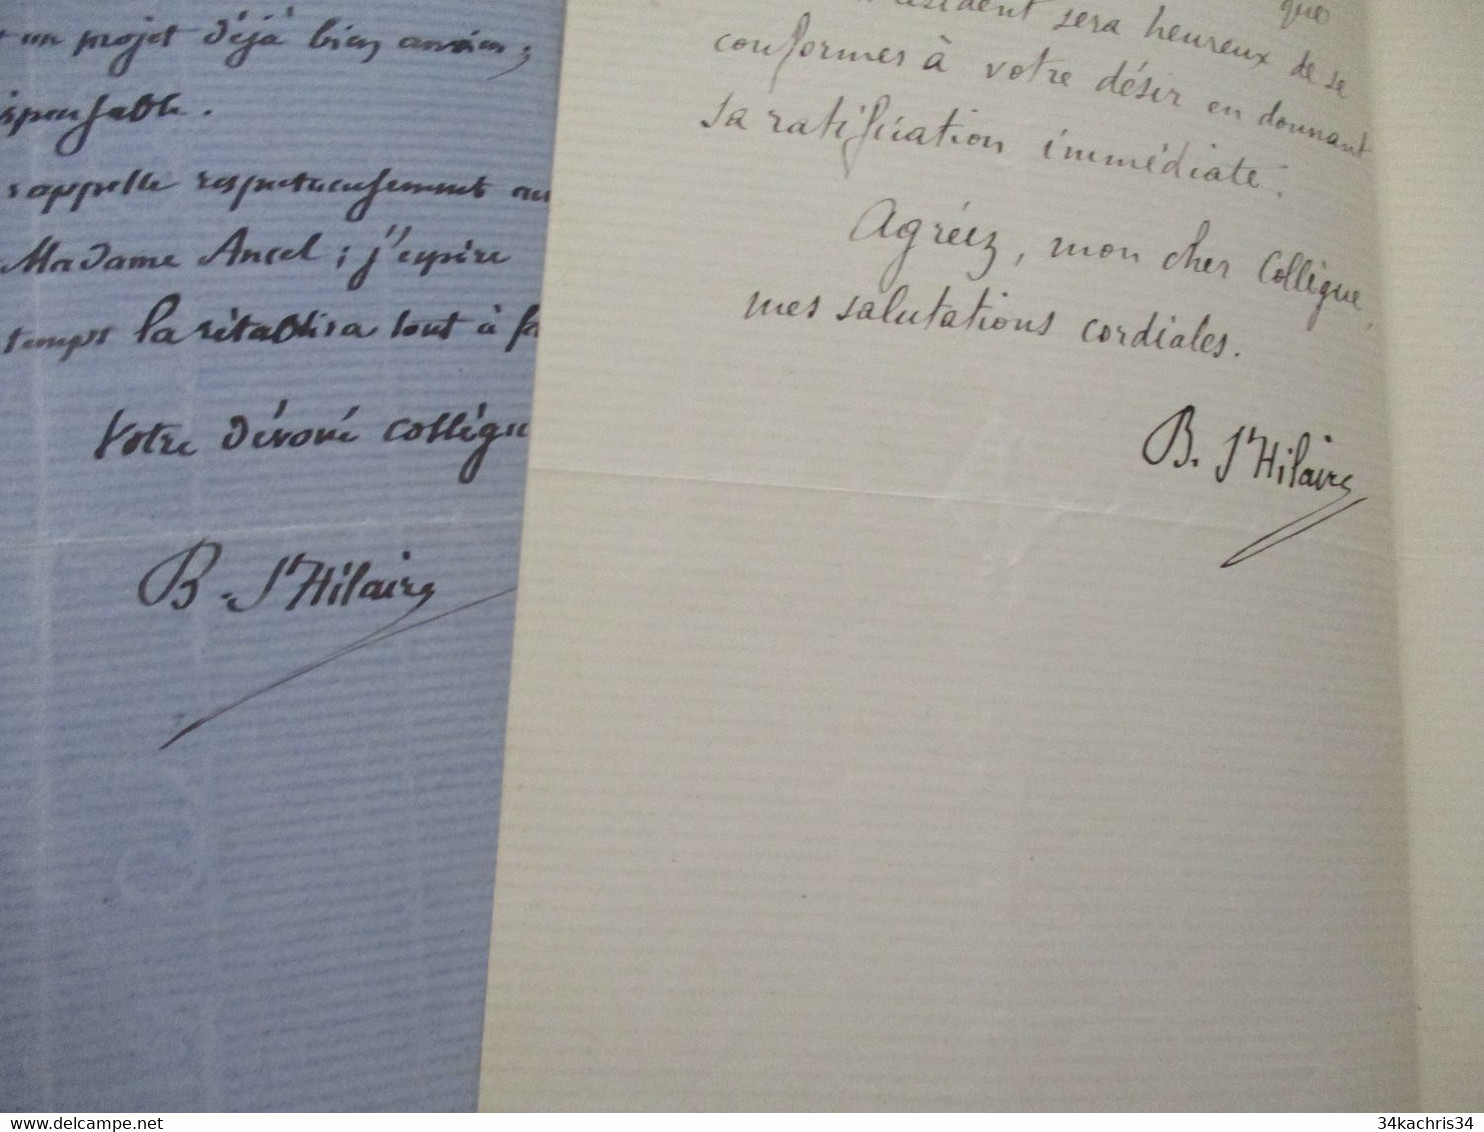 un projet déjà bien ancien ;
rappelle respectueusement
Madame Ancel ; j'espère
temps la rétablira tout à
Votre dévoué collègue
B. St Hilaire
que
sera heureux de se
conformer à votre désir en donnant
sa ratification immédiate.
Agréez, mon cher Collègue,
mes salutations cordiales.
B. St Hilaire
34kachris34